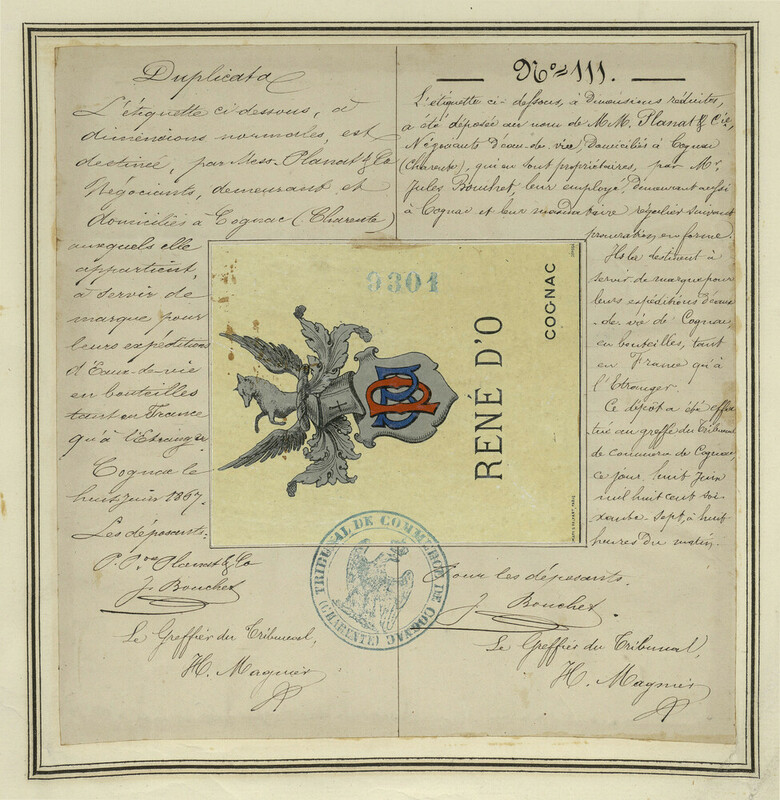 Duplicata
L'étiquette ci-dessous, à
dimensions normales, est
destiné, par Mess. Planat & Co
Négociants, demeurant et
domiciliés à Cognac (Charente)
auxquels elle
appartient,
à servir de
marque pour
leurs expéditions
d'Eaux-de-vie
en bouteilles
tant en France
qu'à l'Etranger
Cognac le
huit juin 1867.
Les déposants.
P. Pon Planat & Co
J. Bouchet
Le Greffier du Tribunal,
H. Magnier
No = 111.
L'étiquette ci-dessous, à dimensions réduites,
a été déposée au nom de M.M. Planat & Cie,
Négociants d'eau-de-vie, Domiciliés à Cognac
(Charente), qui en sont propriétaires, par Mr
Jules Bouchet, leur employé, Demeurant aussi
à Cognac et leur mandataire régulier suivant
procuration en forme.
Ils la destinent à
servir de marque pour
leurs expéditions d'eaux
-de-vie de Cognac,
en bouteilles, tant
en France qu'à
l'Etranger.
Ce dépôt a été effec
tué au greffe du Tribunal
de Commerce de Cognac,
ce jour, huit Juin
mil huit cent soi-
xante-sept, à huit
heures du matin.
Pour les déposants.
J. Bouchet
Le Greffier du Tribunal,
H. Magnier
9301
RENÉ D'O
COGNAC
TRIBUNAL DE COMMERCE DE COGNAC
(CHARENTE)